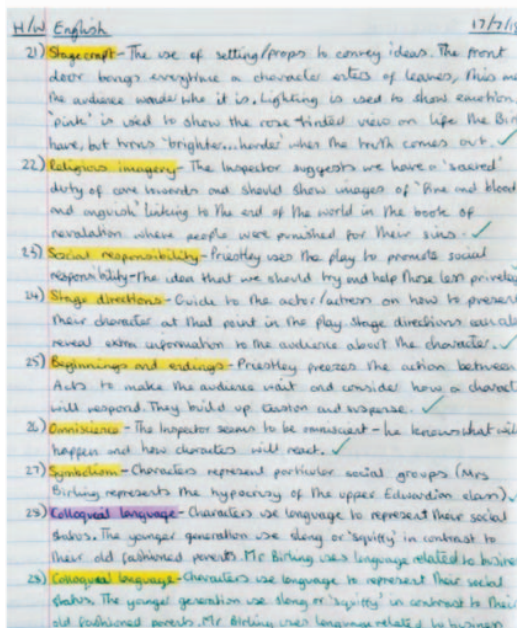 H/W English 17/7/19
21) Stagecraft - The use of setting/props to convey ideas. The front
door bangs everytime a character enters of leaves, this
the audience wonder who it is. Lighting is used to show emotion,
'pink' is used to show the rose-tinded view on life the
have, but turns 'brighter...harder' when the truth comes out. ✓
22) Religious imagery - The Inspector suggests we have a 'sacred'
duty of care towards and should show images of "fire and blood
and anguish" linking to the end of the world in the book of
revalation where people were punished for their sins. ✓
23) Social responsibility - Priestley uses the play to promote social
responsibility - the idea that we should try and help those less
24) Stage directions - Guide to the actor/actress on how to present
their character at that point in the play. Stage directions can
reveal extra information to the audience about the character. ✓
25) Beginnings and endings - Priestley freezes the action between
Acts to make the audience wait and consider how a
will respond. They build up tension and suspense. ✓
26) Omniscience - The Inspector seems to be omniscient - he knows what
happen and how characters will react. ✓
27) Symbolism - Characters represent particular social groups (Mrs
Birling represents the hypocrisy of the upper Edwardian class) ✓
28) Colloqueal language - Characters use language to represent their social
status. The younger generation use slang or 'squiffy' in contrast to
their old fashioned parents. Mr Birling uses language related to
28) Colloqueal language - Characters use language to represent their social
status. The younger generation use slang or 'squiffy' in contrast to their
old fashioned parents. Mr Birling uses language related to business